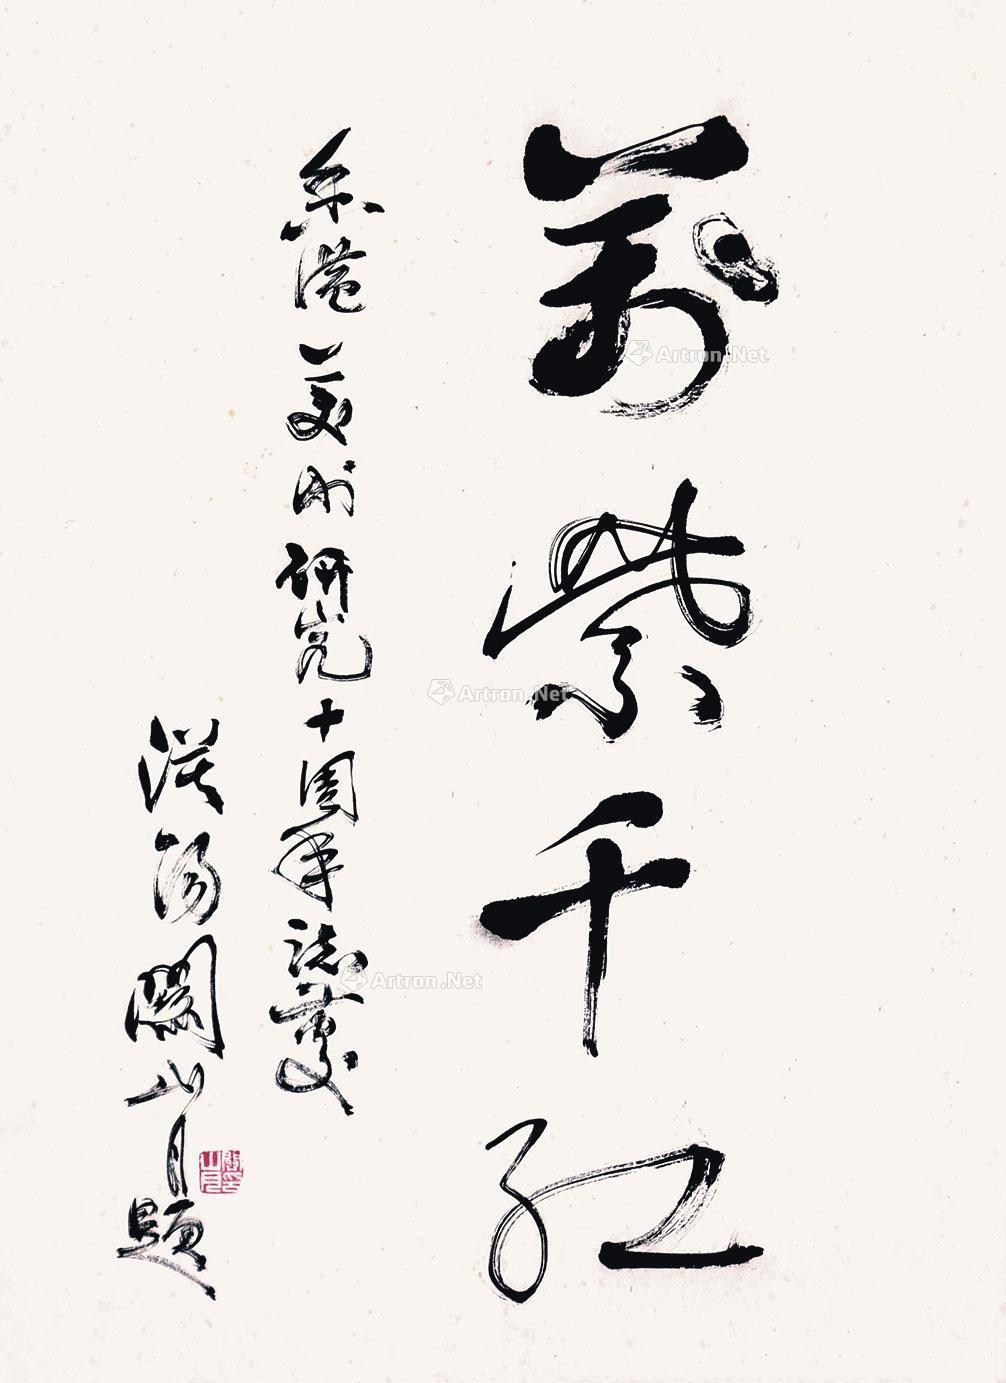 萬紫千紅
香港美術研究十周年誌慶
漠陽關山月題
關山月
Artron.Net
Artron.Net
Artron.Net